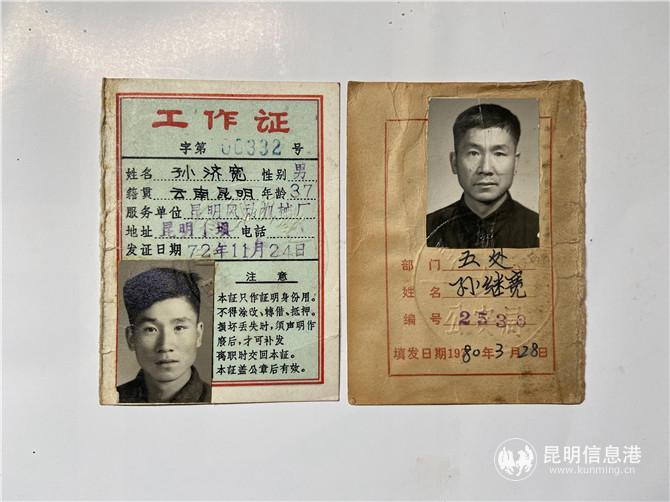 工作证
字第 00332 号
姓名 孙济宽 性别 男
籍贯 云南昆明 年龄 37
服务单位 昆明风动机械厂
地址 昆明 坝 电话
发证日期 72年11月24日
注意
本证只作证明身份用。
不得涂改、转借、抵押。
损坏丢失时,须声明作
废后,才可补发
离职时交回本证。
本证盖公章后有效。
部门 五处
姓名 孙继宽
编号 2536
填发日期1980年3月28日
昆明信息港
www.kunming.cn